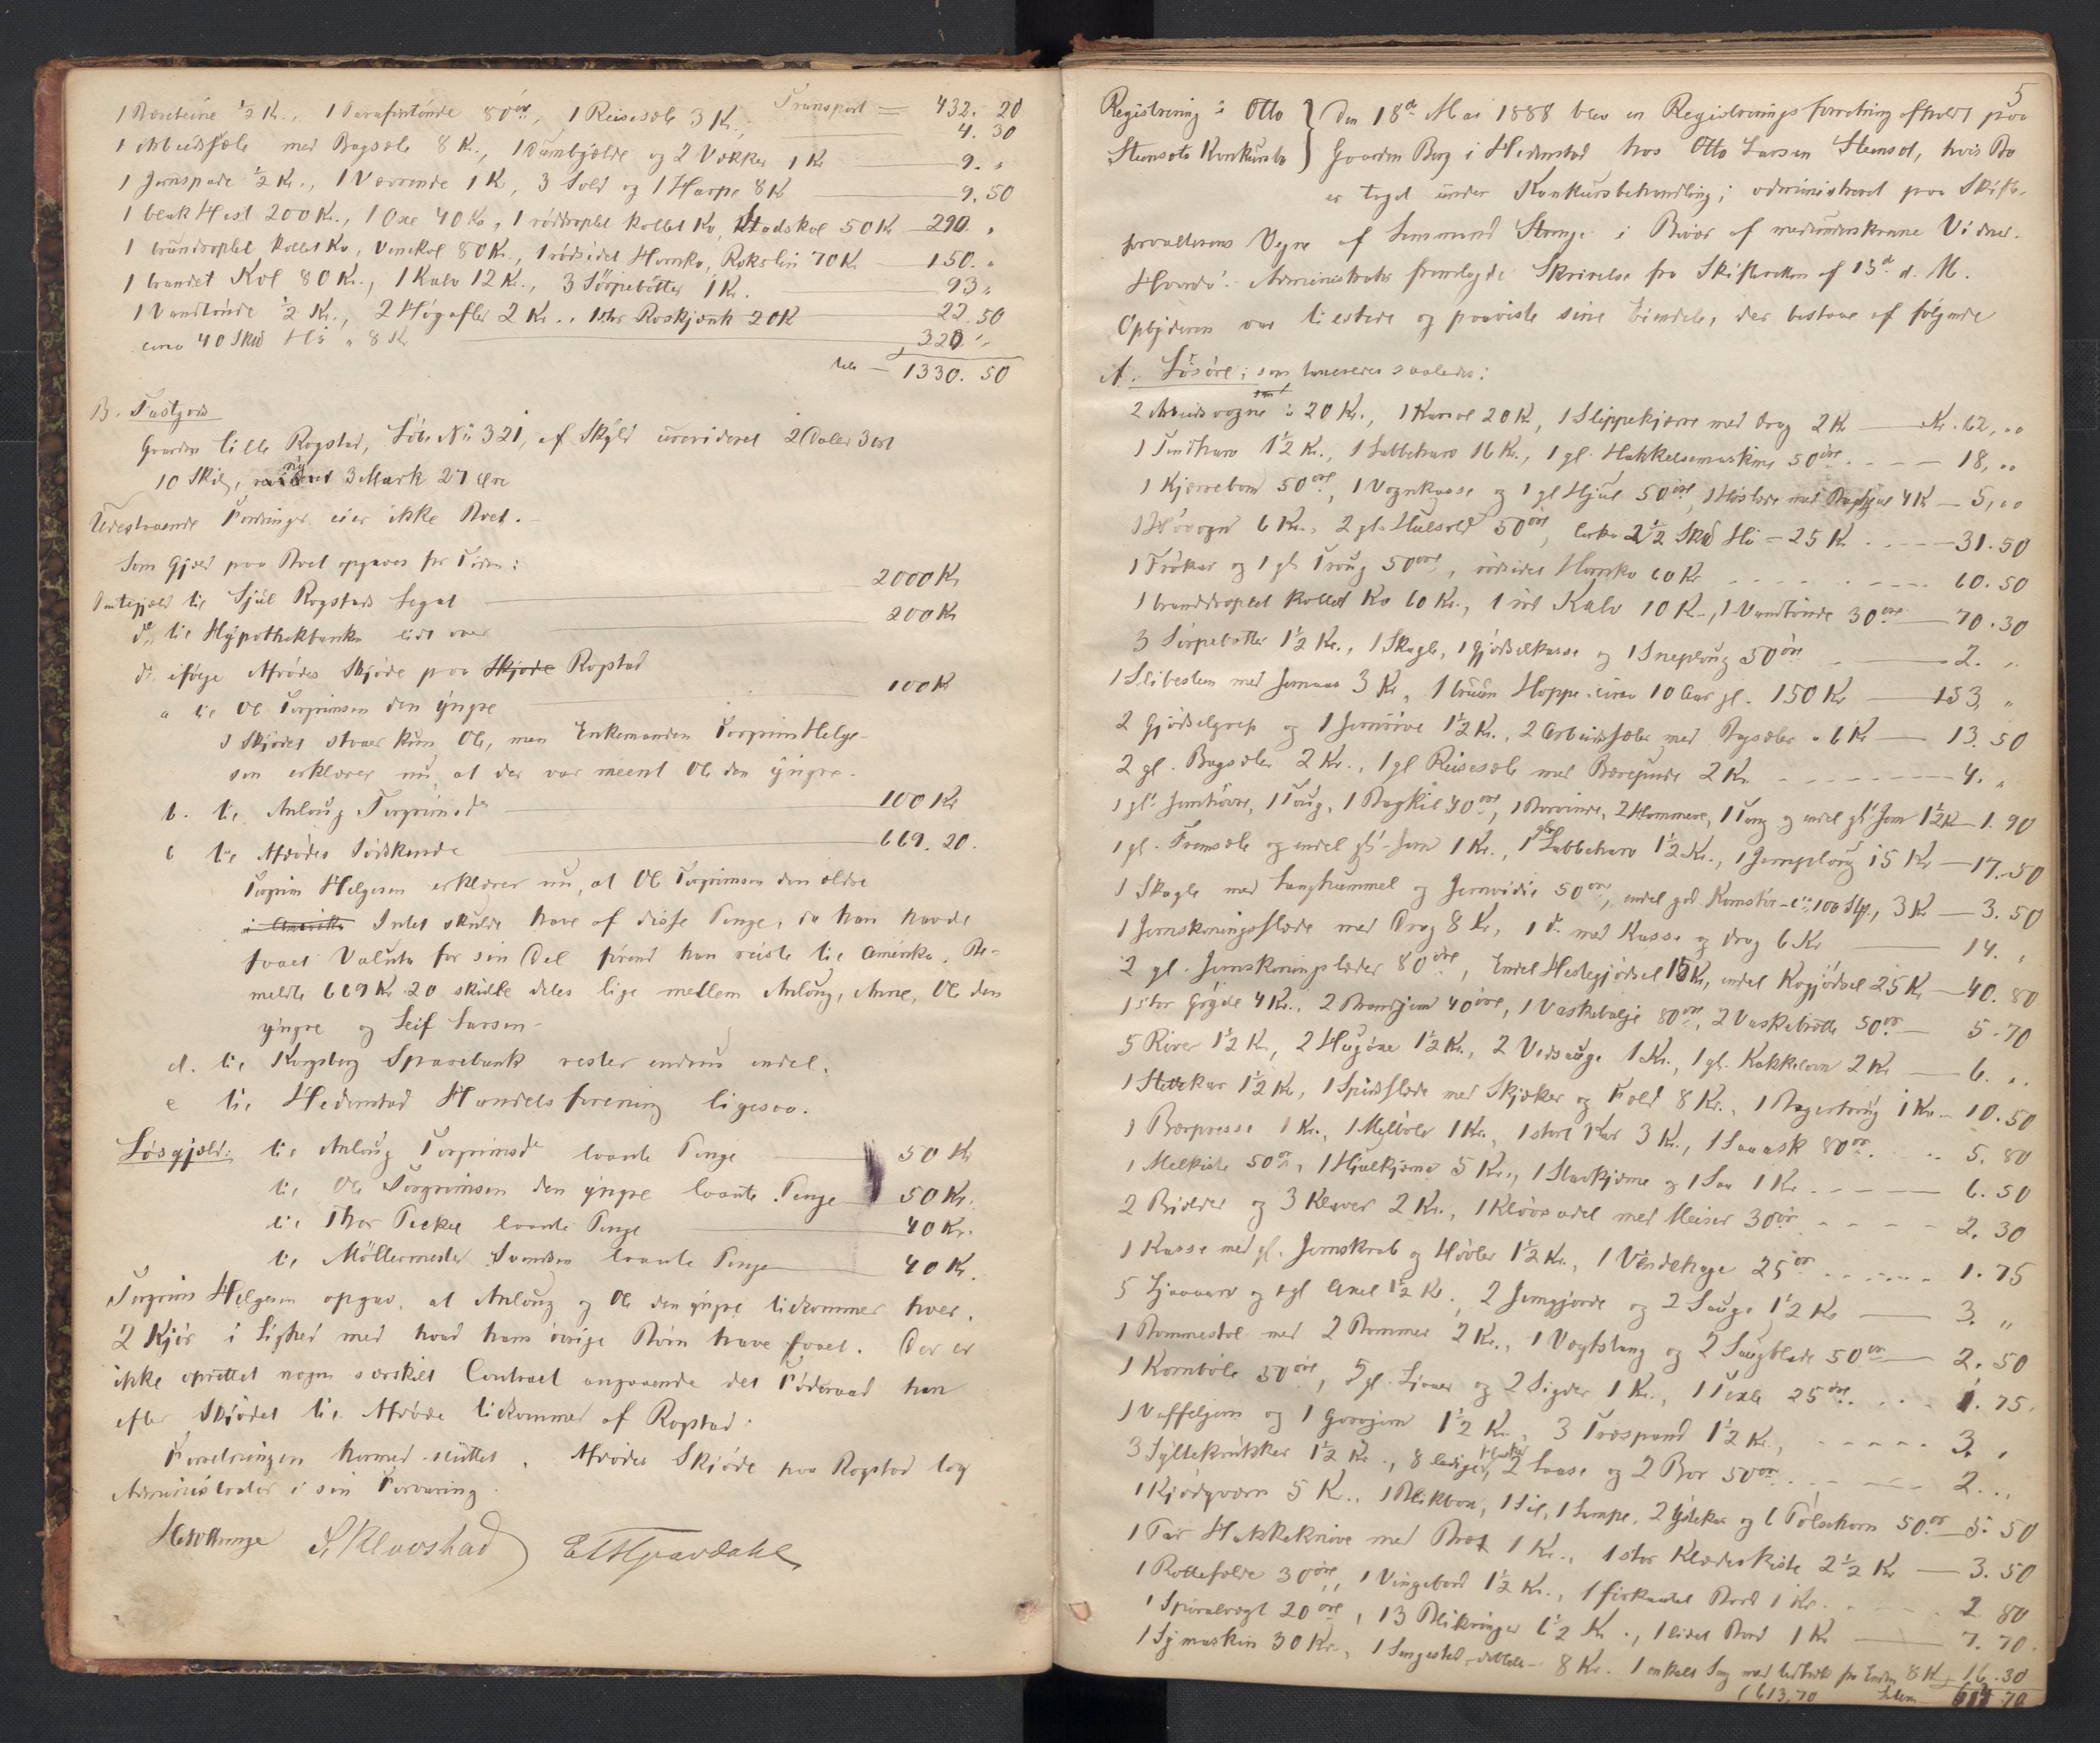 Transport = 432. 20
1 Næveteine ½ Kr., 1 Parafintönde 80 ör, 1 Reisesele 3 Kr. 4. 30
1 Arbeidssele med Bagsele 8 Kr., 1 Dumbjelde og 2 Vekker 1 Kr 9. "
1 Jernspade ½ Kr., 1 1 Kr, 3 Sold og 1 Harpe 8 Kr 9. 50
1 blak Hest 200 Kr., 1 Oxe 40 Kr, 1 rödkaplet kollet Ko, Stadskol 50 Kr 290. "
1 brandraplet kollet Ko, Venekol 80 Kr., 1 rödsidet Hornko, Rokslin 70 Kr 150. "
1 brandet Kol 80 Kr., 1 Kalv 12 Kr., 3 Sörpebötter 1 Kr. 93 "
1 Vandtönde ½ Kr., 2 Högafler 2 Kr., 1 stor 20 Kr 22. 50
circa 40 Skd Hö a 8 Kr 320 "
1330. 50
B. Fastgods
Gaarden lille Rogstad, Löbe No 321, af Skyld urevideret 2 Daler 3 ort
10 Skil, ny 3 Mark 27 Öre
Udestaaende Fordringer eier ikke Boet.
Som Gjæld paa Boet opgaves for Tiden:
Pantegjæld til Sjul Rogstads Legat 2000 Kr
do til Hypothekbanken lidt over 200 Kr
do ifölge Afdödes Skjöde paa Skjöde Rogstad
a til Ole Torgrimsen den yngre 100 Kr
I Skjödet staaer kun Ole, men Enkemanden Torgrim Helge-
sen erklærer nu, at der var meent Ole den yngre.
b. til Anlaug Torgrimsdr 100 Kr
c til Afdödes Södskende 669. 20.
Torgrim Helgesen erklærer nu, at Ole Torgrimsen den ældre
i Amerika Intet skulde have af disse Penge, da han havde
faaet Valuta for sin Del förend han reiste til Amerika. Be-
meldte 669 Kr 20 skulle deles lige mellem Anlaug, Anne, Ole den
yngre og Leif Larsen.
d. til Kongsberg Sparebank rester endnu endel.
e til Hedenstad Handelsforening ligesaa.
Lösgjæld: til Anlaug Torgrimsdr laante Penge 50 Kr
til Ole Torgrimsen den yngre laante Penge 50 Kr.
til Thor laante Penge 40 Kr.
til Möllermester Svendsen laante Penge 40 Kr.
Torgrim Helgesen opgav, at Anlaug og Ole den yngre tilkommer hver
2 Kjör i Lighed med hvad hans övrige Börn have faaet. Der er
ikke oprettet nogen særskilt Contract angaaende det Föderaad han
efter Skjödet til Afdöde tilkommer af Rogstad.
Forretningen hermed sluttet. Afdödes Skjöde paa Rogstad tog
Administrator i sin Forvaring.
S. Klaavstad
5
Registrering i Otto
Steensets Konkursbo
Den 18de Mai 1888 blev en Registreringsforretning afholdt paa
Gaarden Berg i Hedenstad hos Otto Larsen Steenset, hvis Bo
er taget under Konkursbehandling; administreret paa Skifte-
forvalterens Vegne af Lensmand Stange i Bivær af medunderskrevne Vidner.
Hvorda: Administrator fremlagde Skrivelse fra Skifteretten af 15de d. M.
Opbyderen var tilstede og paaviste sine Eiendele, der bestaae af följende
A. Lösöre; som taxeredes saaledes:
2 Arbeidsvogne a 20 Kr., 1 Kariol 20 Kr, 1 Slippekjærre med Drag 2 Kr Kr. 62, "
1 Tindharv 1½ Kr., 1 Labbeharv 16 Kr., 1 gl. Hakkelsemaskine 50 öre 18, "
1 Kjærrebom 50 öre, 1 Vognkasse og 1 gl Hjul 50 öre, 1 med 4 Kr 5, "
1 Hövogn 6 Kr., 2 gl. Hulsold 50 öre, cirka 2½ Skd Hö = 25 Kr 31. 50
1 Frökar og 1 gl. Troug 50 öre, rödsidet Hornko 60 Kr 60. 50
1 branddraplet kollet Ko 60 Kr., 1 röd Kalv 10 Kr., 1 Vandtönde 30 öre 70. 30
3 Sörpebötter 1½ Kr., 1 Skagle, 1 Gjödselkasse og 1 Sneploug 50 öre 2. "
1 Slibesten med Jernaas 3 Kr, 1 bruun Hoppe circa 10 Aar gl. 150 Kr 153, "
2 Gjödselgreb og 1 Jernröve 1½ Kr., 2 Arbeidsseler med Bagseler a 6 Kr 13. 50
2 gl. Bagseler 2 Kr., 1 gl Reisesele med 2 Kr. 4. "
1 gl. 1 Toug, 1 40 öre, 1 2 Hammere, 1 Tang og endel gl. Jern 1½ Kr 1. 90
1 gl. Fremsele og endel gl. Jern 1 Kr., 1 gl. Labbeharv 1½ Kr., 1 Jernploug 15 Kr 17. 50
1 Skagle med Langhummel og Jernvidie 50 öre, endel god 3 Kr 3. 50
1 Jernskoningsslæde med Drag 8 Kr, 1 do med Kasse og Drag 6 Kr 14. "
2 gl. 80 öre, Endel Hestegjödsel 15 Kr, endel Kogjödsel 25 Kr 40. 80
1 stor Gryde 4 Kr., 2 Brandjern 40 öre, 1 Vaskebalje 80 ör, 2 Vaskebrætte 50 ör 5. 70
5 River 1½ Kr, 2 Hugöxe 1½ Kr., 2 Vedsauge 1 Kr., 1 gl. Kakkelovn 2 Kr 6. "
1 1½ Kr, 1 Spidsslæde med Skjæker og Fæld 8 Kr., 1 Bagertroug 1 Kr. 10. 50
1 Bærpresse 1 Kr., 1 Melbøle 1 Kr., 1 stort Kar 3 Kr., 1 80 ör 5. 80
1 Melkiste 50 ör, 1 Hjulkjerne 5 Kr., 1 Stavkjerne og 1 Saa 1 Kr 6. 50
2 Bjelder og 3 Klaver 2 Kr., 1 Klövsadel med Meiser 30 ör 2. 30
1 Kasse med gl. Jernskrab og Høvler 1½ Kr., 1 Vendehage 25 ör 1. 75
5 Ljaaaarv og 1 gl Axel 1½ Kr., 2 Jerngjorde og 2 Sauge 1½ Kr 3. "
1 Bommestol med 2 Bommer 2 Kr., 1 Vægtstang og 2 Saugblade 50 ör 2. 50
1 Kornböle 50 öre, 5 gl. Ljaaer og 2 Sigder 1 Kr., 1 Texle 25 öre 1. 75.
1 Vaffeljern og 1 Gorojern 1½ Kr., 3 Træspand 1½ Kr. 3. "
3 Syltekrukker 1½ Kr., 8 ledige Flasker, 2 Laase og 2 Bor 50 ör 2. "
1 Kjödqværn 5 Kr., 1 Blikbox, 1 Sil, 1 Lampe, 2 Ystekar og 6 Pölsehorn 50 ör 5. 50
1 Par Hakkeknive med Bræt 1 Kr., 1 stor Klædeskiste 2½ Kr 3. 50
1 Rottefælde 30 öre, 1 Vingebord 1½ Kr., 1 firkantet Bord 1 Kr. 2. 80
1 Spiralvægt 20 öre, 13 Blikringer 6½ Kr., 1 lidet Bord 1 Kr 7. 70.
1 Symaskin 30 Kr., 1 Sengested dobbelt 8 Kr. 1 enkelt Seng med 8 Kr 16. 30
(613,70 Latus 614 70